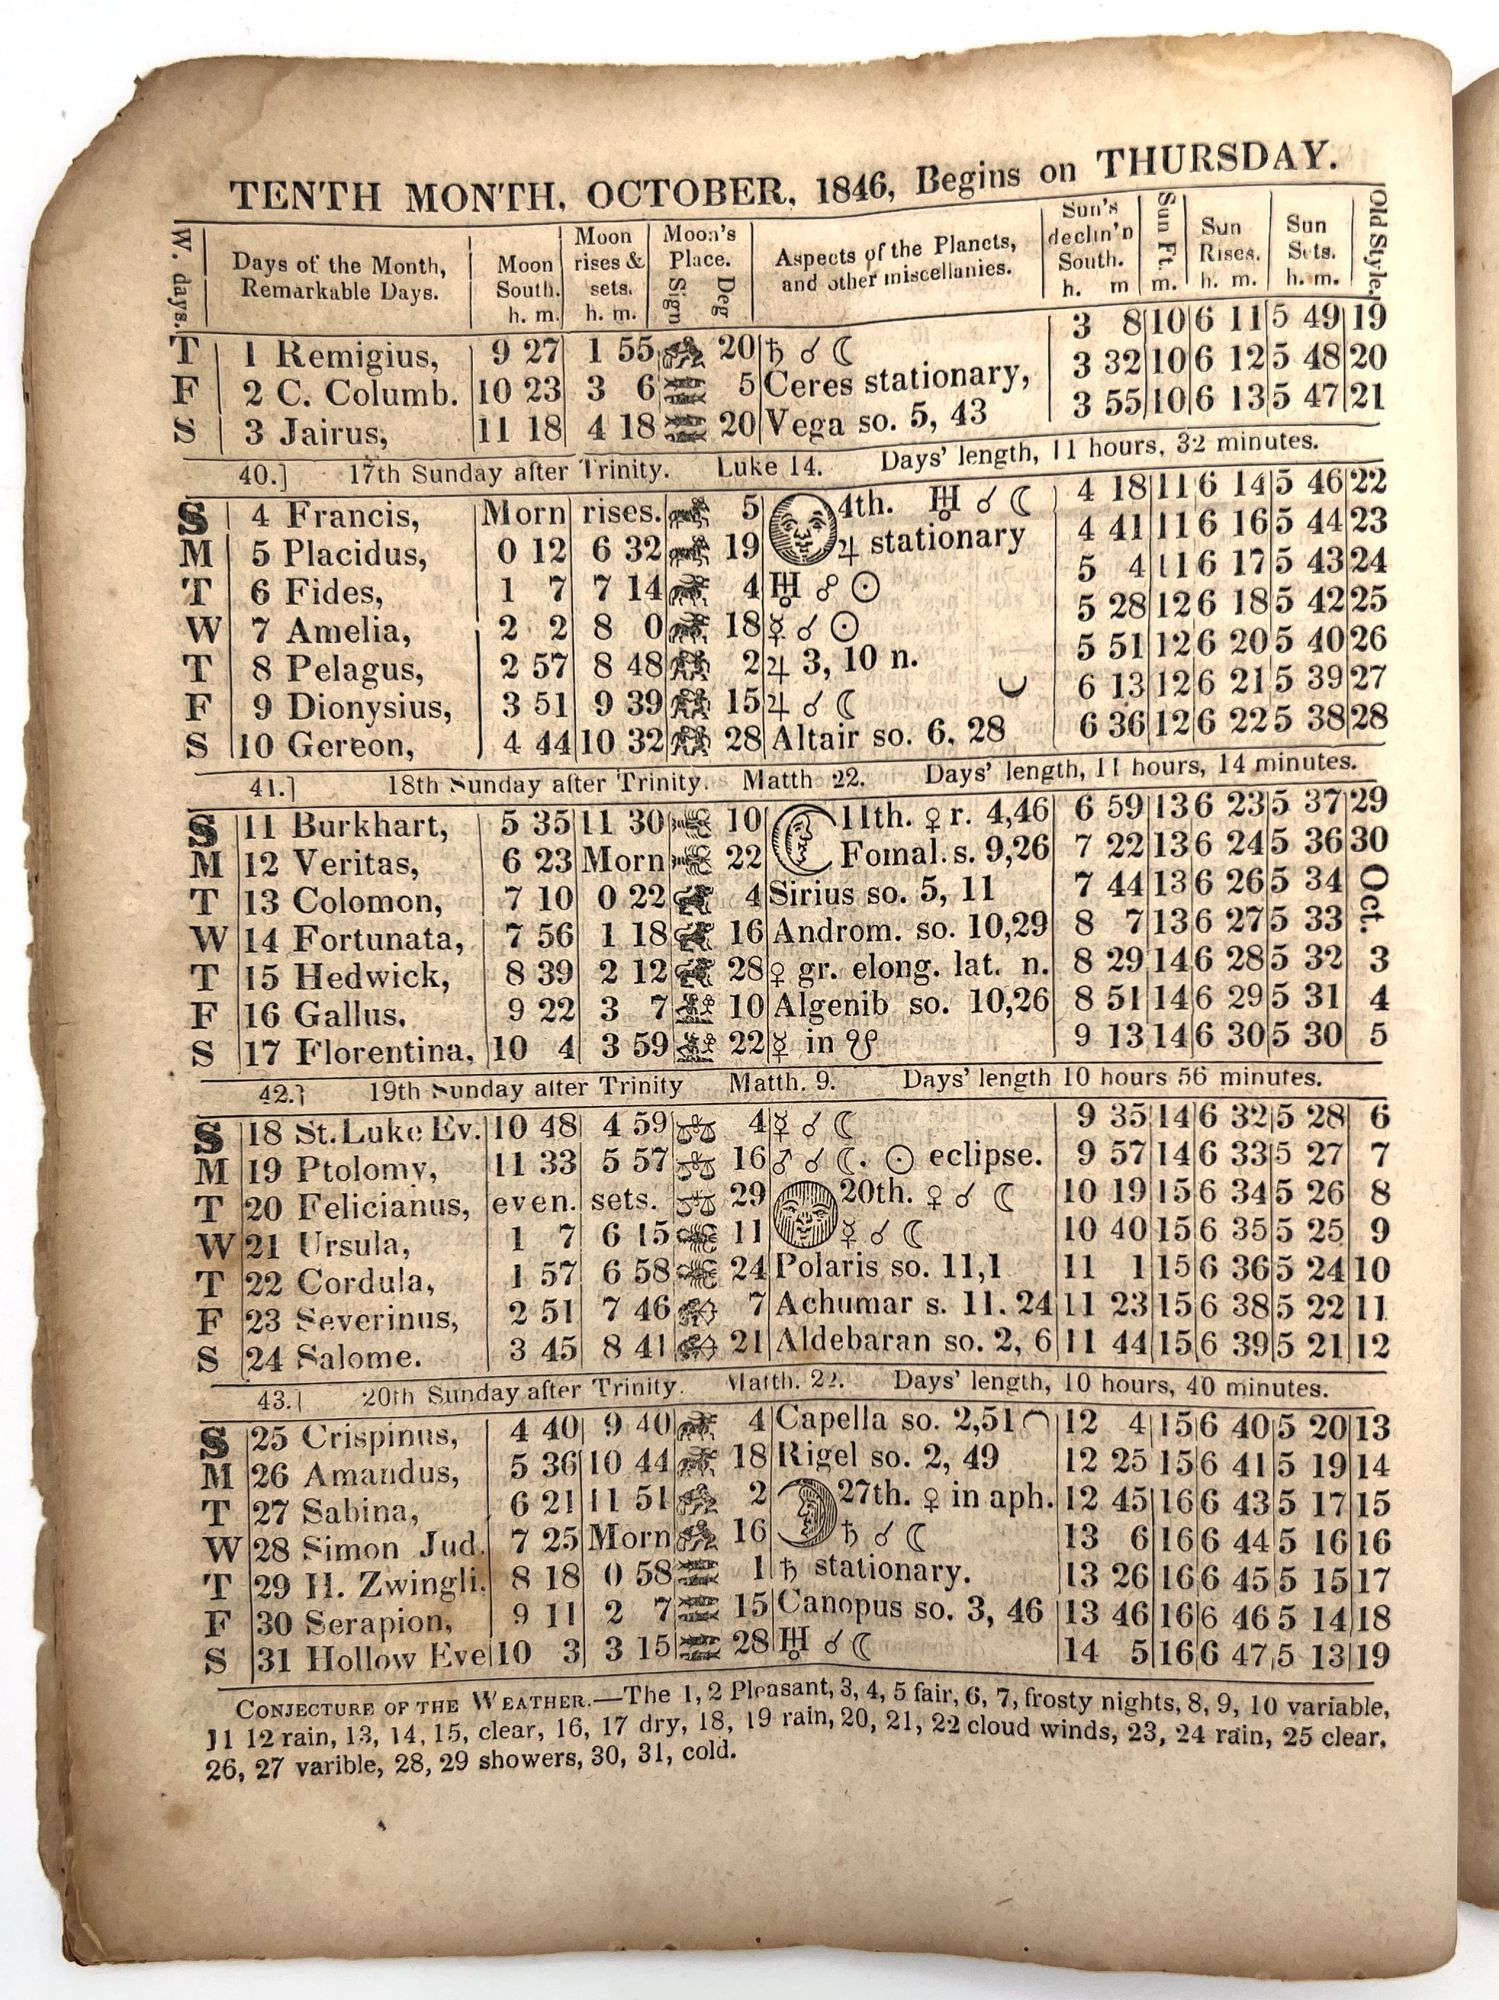 TENTH MONTH, OCTOBER, 1846, Begins on THURSDAY.
W. days. Days of the Month, Remarkable Days. Moon South. h. m. Moon rises & sets. h. m. Moon's Place. Sign Deg Aspects of the Planets, and other miscellanies. Sun's declin'n South. h. m Sun Ft. m. Sun Rises. h. m. Sun Sets. h. m. Old Style.
T 1 Remigius, 9 27 1 55 20 ♄ ☌ ☾ 3 8 10 6 11 5 49 19
F 2 C. Columb. 10 23 3 6 5 Ceres stationary, 3 32 10 6 12 5 48 20
S 3 Jairus, 11 18 4 18 20 Vega so. 5, 43 3 55 10 6 13 5 47 21
40.] 17th Sunday after Trinity. Luke 14. Days' length, 11 hours, 32 minutes.
S 4 Francis, Morn rises. 5 4th. ♅ ☌ ☾ 4 18 11 6 14 5 46 22
M 5 Placidus, 0 12 6 32 19 ♃ stationary 4 41 11 6 16 5 44 23
T 6 Fides, 1 7 7 14 4 ♅ ☍ ☉ 5 4 11 6 17 5 43 24
W 7 Amelia, 2 2 8 0 18 ☿ ☌ ☉ 5 28 12 6 18 5 42 25
T 8 Pelagus, 2 57 8 48 2 ♃ 3, 10 n. 5 51 12 6 20 5 40 26
F 9 Dionysius, 3 51 9 39 15 ♃ ☌ ☾ 6 13 12 6 21 5 39 27
S 10 Gereon, 4 44 10 32 28 Altair so. 6, 28 6 36 12 6 22 5 38 28
41.] 18th Sunday after Trinity. Matth 22. Days' length, 11 hours, 14 minutes.
S 11 Burkhart, 5 35 11 30 10 11th. ♀ r. 4,46 6 59 13 6 23 5 37 29
M 12 Veritas, 6 23 Morn 22 Fomal. s. 9,26 7 22 13 6 24 5 36 30
T 13 Colomon, 7 10 0 22 4 Sirius so. 5, 11 7 44 13 6 26 5 34 Oct.
W 14 Fortunata, 7 56 1 18 16 Androm. so. 10,29 8 7 13 6 27 5 33
T 15 Hedwick, 8 39 2 12 28 ♀ gr. elong. lat. n. 8 29 14 6 28 5 32 3
F 16 Gallus, 9 22 3 7 10 Algenib so. 10,26 8 51 14 6 29 5 31 4
S 17 Florentina, 10 4 3 59 22 ☿ in ☋ 9 13 14 6 30 5 30 5
42.] 19th Sunday after Trinity Matth. 9. Days' length 10 hours 56 minutes.
S 18 St. Luke Ev. 10 48 4 59 4 ☿ ☌ ☾ 9 35 14 6 32 5 28 6
M 19 Ptolomy, 11 33 5 57 16 ♂ ☌ ☾. ☉ eclipse. 9 57 14 6 33 5 27 7
T 20 Felicianus, even. sets. 29 20th. ♀ ☌ ☾ 10 19 15 6 34 5 26 8
W 21 Ursula, 1 7 6 15 11 ☿ ☌ ☾ 10 40 15 6 35 5 25 9
T 22 Cordula, 1 57 6 58 24 Polaris so. 11,1 11 1 15 6 36 5 24 10
F 23 Severinus, 2 51 7 46 7 Achumar s. 11. 24 11 23 15 6 38 5 22 11
S 24 Salome. 3 45 8 41 21 Aldebaran so. 2, 6 11 44 15 6 39 5 21 12
43.] 20th Sunday after Trinity. Matth. 22. Days' length, 10 hours, 40 minutes.
S 25 Crispinus, 4 40 9 40 4 Capella so. 2,51 12 4 15 6 40 5 20 13
M 26 Amandus, 5 36 10 44 18 Rigel so. 2, 49 12 25 15 6 41 5 19 14
T 27 Sabina, 6 21 11 51 2 27th. ♀ in aph. 12 45 16 6 43 5 17 15
W 28 Simon Jud. 7 25 Morn 16 ♄ ☌ ☾ 13 6 16 6 44 5 16 16
T 29 H. Zwingli, 8 18 0 58 1 ♄ stationary. 13 26 16 6 45 5 15 17
F 30 Serapion, 9 11 2 7 15 Canopus so. 3, 46 13 46 16 6 46 5 14 18
S 31 Hollow Eve 10 3 3 15 28 ♅ ☌ ☾ 14 5 16 6 47 5 13 19
CONJECTURE OF THE WEATHER.—The 1, 2 Pleasant, 3, 4, 5 fair, 6, 7, frosty nights, 8, 9, 10 variable,
11 12 rain, 13, 14, 15, clear, 16, 17 dry, 18, 19 rain, 20, 21, 22 cloud winds, 23, 24 rain, 25 clear,
26, 27 varible, 28, 29 showers, 30, 31, cold.